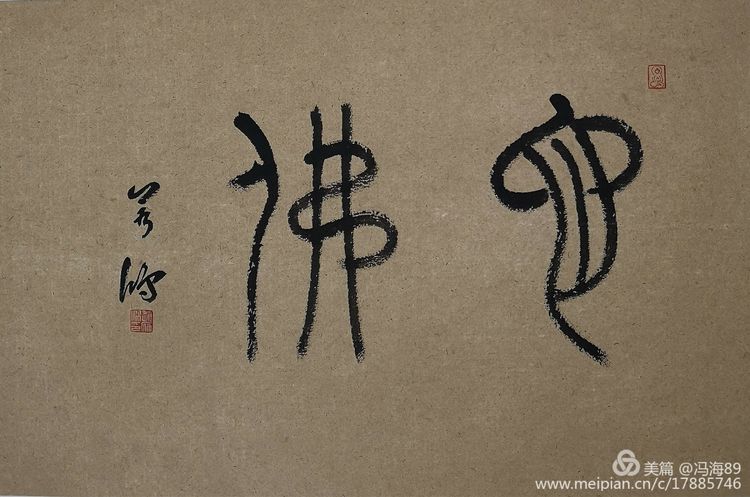 心佛
美篇 @冯海89
www.meipian.cn/c/17885746